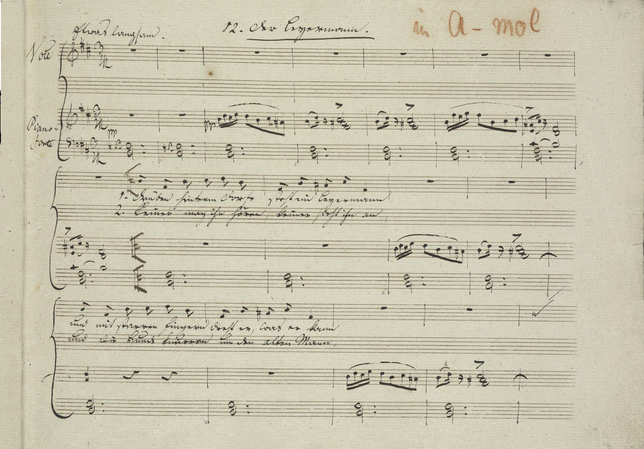 Etwas langsam. 12. Der Leyermann. in A-mol
Piano-
forte
1. Drüben hinterm Dorfe steht ein Leyermann
2. Keiner mag ihn hören, keiner sieht ihn an
und mit starren Fingern dreht er, was er kann
und die Hunde knurren um den alten Mann.